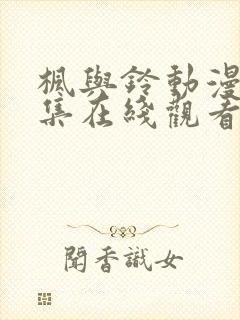 楓與鈴動漫
集在綫觀看
聞香識女